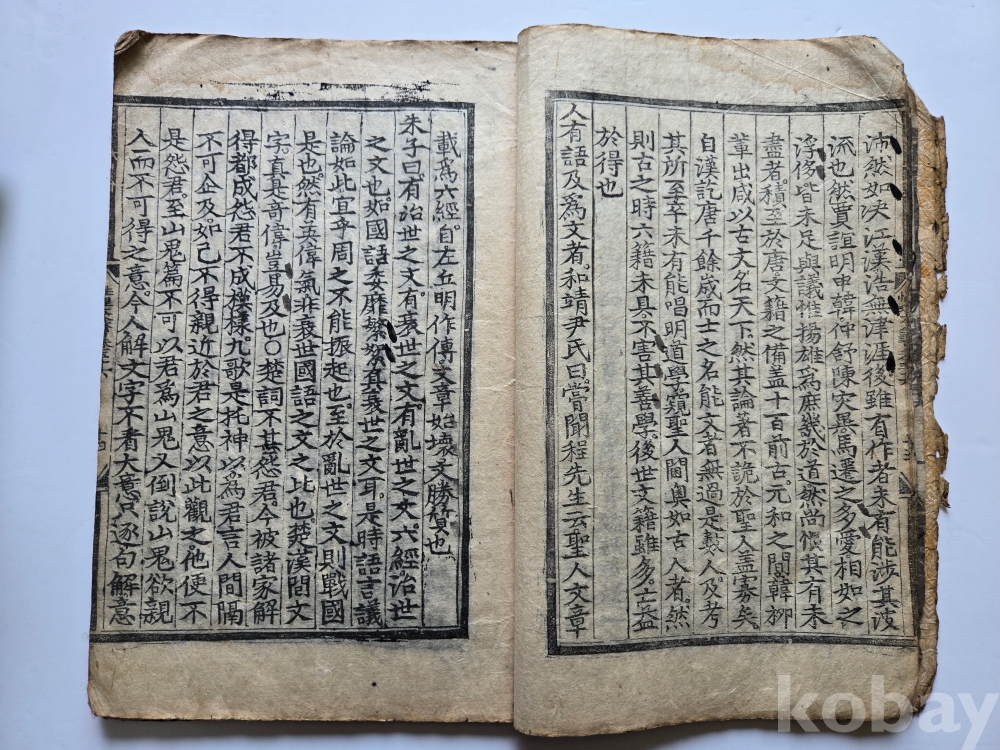 沛然如决江漢浩無津涯後雖有作者未有能涉其波
流也然賈誼明申韓仲舒陳灾異馬遷之多愛相如之
浮侈皆未足與議惟揚雄爲庶幾於道然尚恨其有未
盡者積至於唐文籍之備盖十百前古元和之間韓柳
軰出咸以古文名天下然其論著不詭於聖人盖寡矣
自漢訖唐千餘歲而士之名能文者無過是數人及考
其所至卒未有能唱明道學窺聖人閫奧如古人者然
則古之時六籍未具不害其善學後世文籍雖多亡益
於得也
人有語及爲文者和靖尹氏曰嘗聞程先生云聖人文章
載爲六經自左丘明作傳文章始壞文勝質也
朱子曰有治世之文有衰世之文有亂世之文六經治世
之文也如國語委靡繁絮眞衰世之文耳是時語言議
論如此宜乎周之不能振起也至於亂世之文則戰國
是也然有英偉氣非衰世國語之文之比也楚漢間文
字眞是奇偉豈易及也○楚詞不甚怨君今被諸家解
得都成怨君不成模樣九歌是托神以爲君言人間隔
不可企及如己不得親近於君之意以此觀之他便不
是怨君至山鬼篇不可以君爲山鬼又倒說山鬼欲親
人而不可得之意今人解文字不看大意只逐句解意
kobay